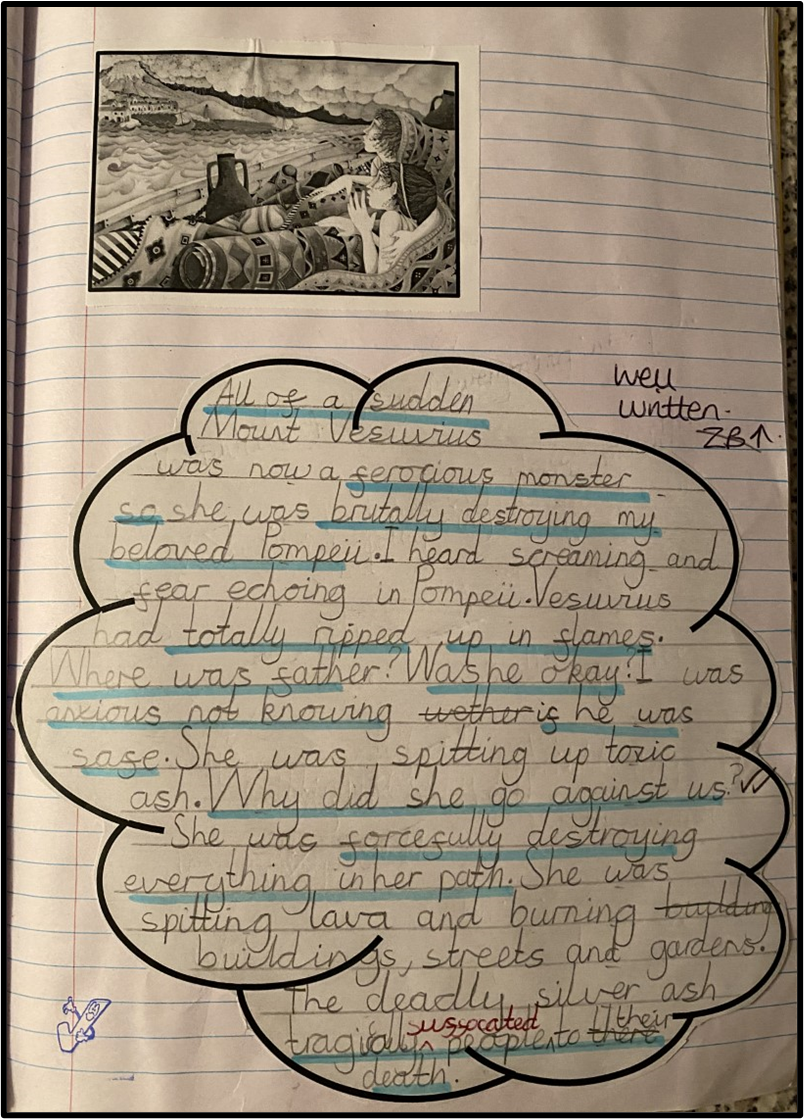 All of a sudden
Mount Vesuvius
was now a ferocious monster
so she was brutally destroying my
beloved Pompeii. I heard screaming and
fear echoing in Pompeii. Vesuvius
had totally ripped up in flames.
Where was father? Was he okay? I was
anxious not knowing wether if he was
safe. She was spitting up toxic
ash. Why did she go against us?
She was forcefully destroying
everything in her path. She was
spitting lava and burning buplding
buildings, streets and gardens.
The deadly silver ash
tragically sussocated people to there their
death.
Well
written.
ZB↑.